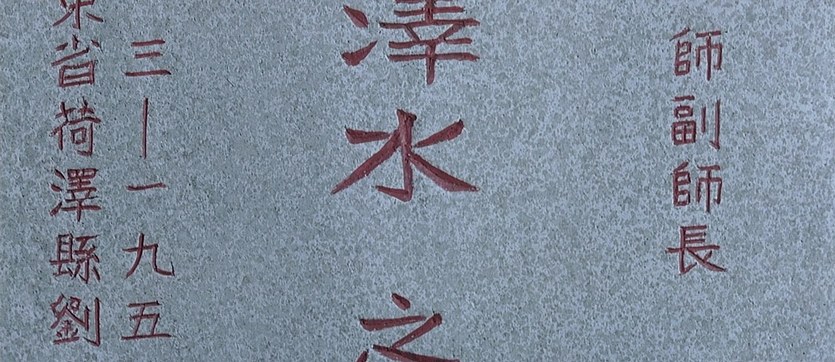 師副師長
澤水之
三—一九五
東省荷澤縣劉